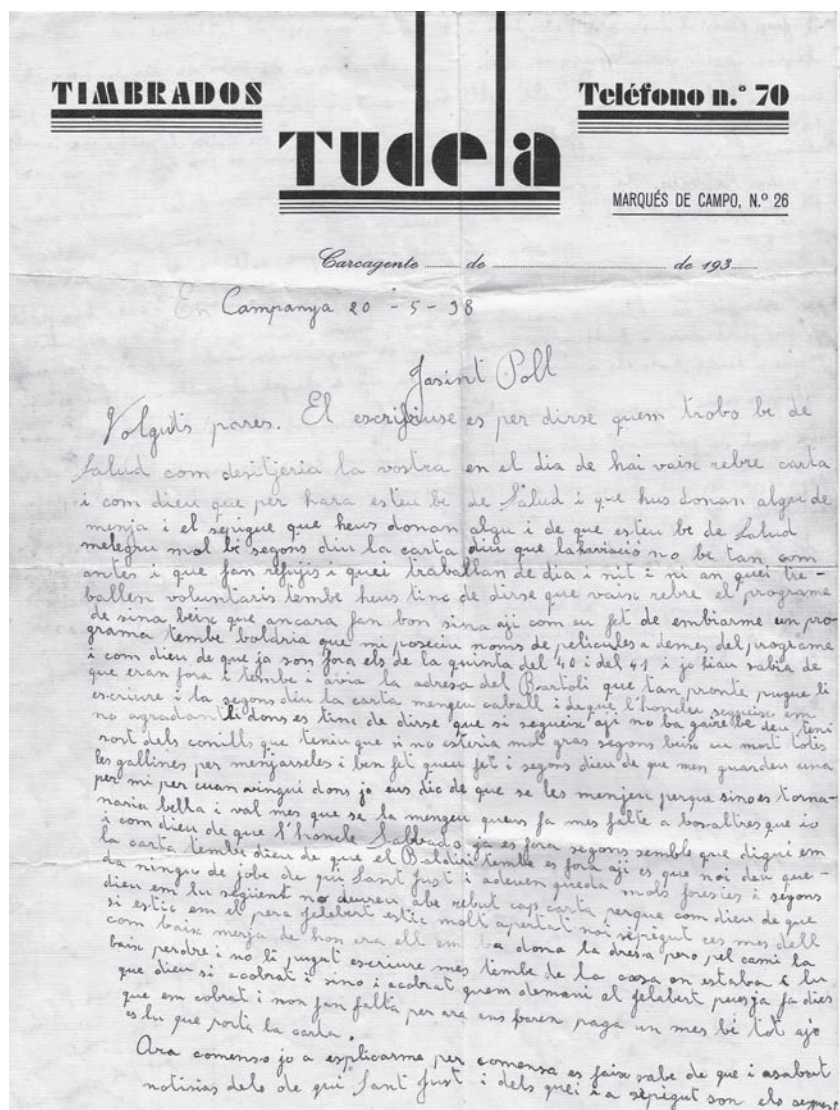 TIMBRADOS
Teléfono n.º 70
Tudela
MARQUÉS DE CAMPO, N.º 26
Carcagente de de 193
En Campanya 20 - 5 - 38
Jasint Poll
Volguts pares. El escriguiuse es per dirse quem trobo be de
salud com desitjeria la vostra en el dia de hai vaix rebre carta
i com dieu que per hara esteu be de Salud i que hus donan algu de
menja i el sepigue que heus donan algu i de que esteu be de Salud
melegru mol be segons diu la carta diu que la no be tan com
antes i que fan refujis i quei traballan de dia i nit i ni an quei tre-
ballen voluntaris tembe heus tinc de dirse que vaix rebre el programe
de sina beix que ancara fan bon sina aji com eu fet de embiarme un pro-
grama tembe boldria que mi poseciu noms de pelicules a demes del programe
i com dieu de que ja son fora els de la quinta del 40 i del 41 i jo hiau sabia de
que eran fora i tembe i avia la adresa del Bartoli que tan pronte pugue li
escriure i la segons diu la carta mengeu caball i de que l'honcle segueix em
no agradantli dons es tinc de dirse que si segueix aji no ba gaire be deu teni
sort dels conills que teniu que si no esteria mol gras segons beix eu mort totes
les gallines per menjarseles i ben fet queu fet i segons dieu de que men guardeu una
per mi per cuan vingui dons jo eus dic de que se les menjeu perque sinoes torna-
naria bella i val mes que se la mengeu queus fa mes falte a bosaltres que io
i com dieu de que l'honcle Sabbado ja es fora segons semble que digui em
la carta tembe dieu de que el Baldiri tembe es fora aji es que noi deu que-
da ningu de jobe de qui Sant Just i adeuen queda mols forestes i segons
dieu em lu següent no deureu abe rebut cap carta perque com dieu de que
si estic em el pera felebert estic molt apertat noi sepigut res mes dell
com baix menja de hon era ell em ba dona la dresa pero pel cami la
baix perdre i no li pugut escriure mes tembe de la cosa on estaba i lu
que dieu si acobrat i sino i acobrat quem demani al felabert pues ja fa dies
que em cobrat i non fan falta per ara ens paren paga un mes bé tot ajo
es lu que porta la carta.
Ara comenso jo a esplicarme per comensa es faix sabe de que i asabut
notisias dels de qui Sant Just i dels quei i a sepigut son els